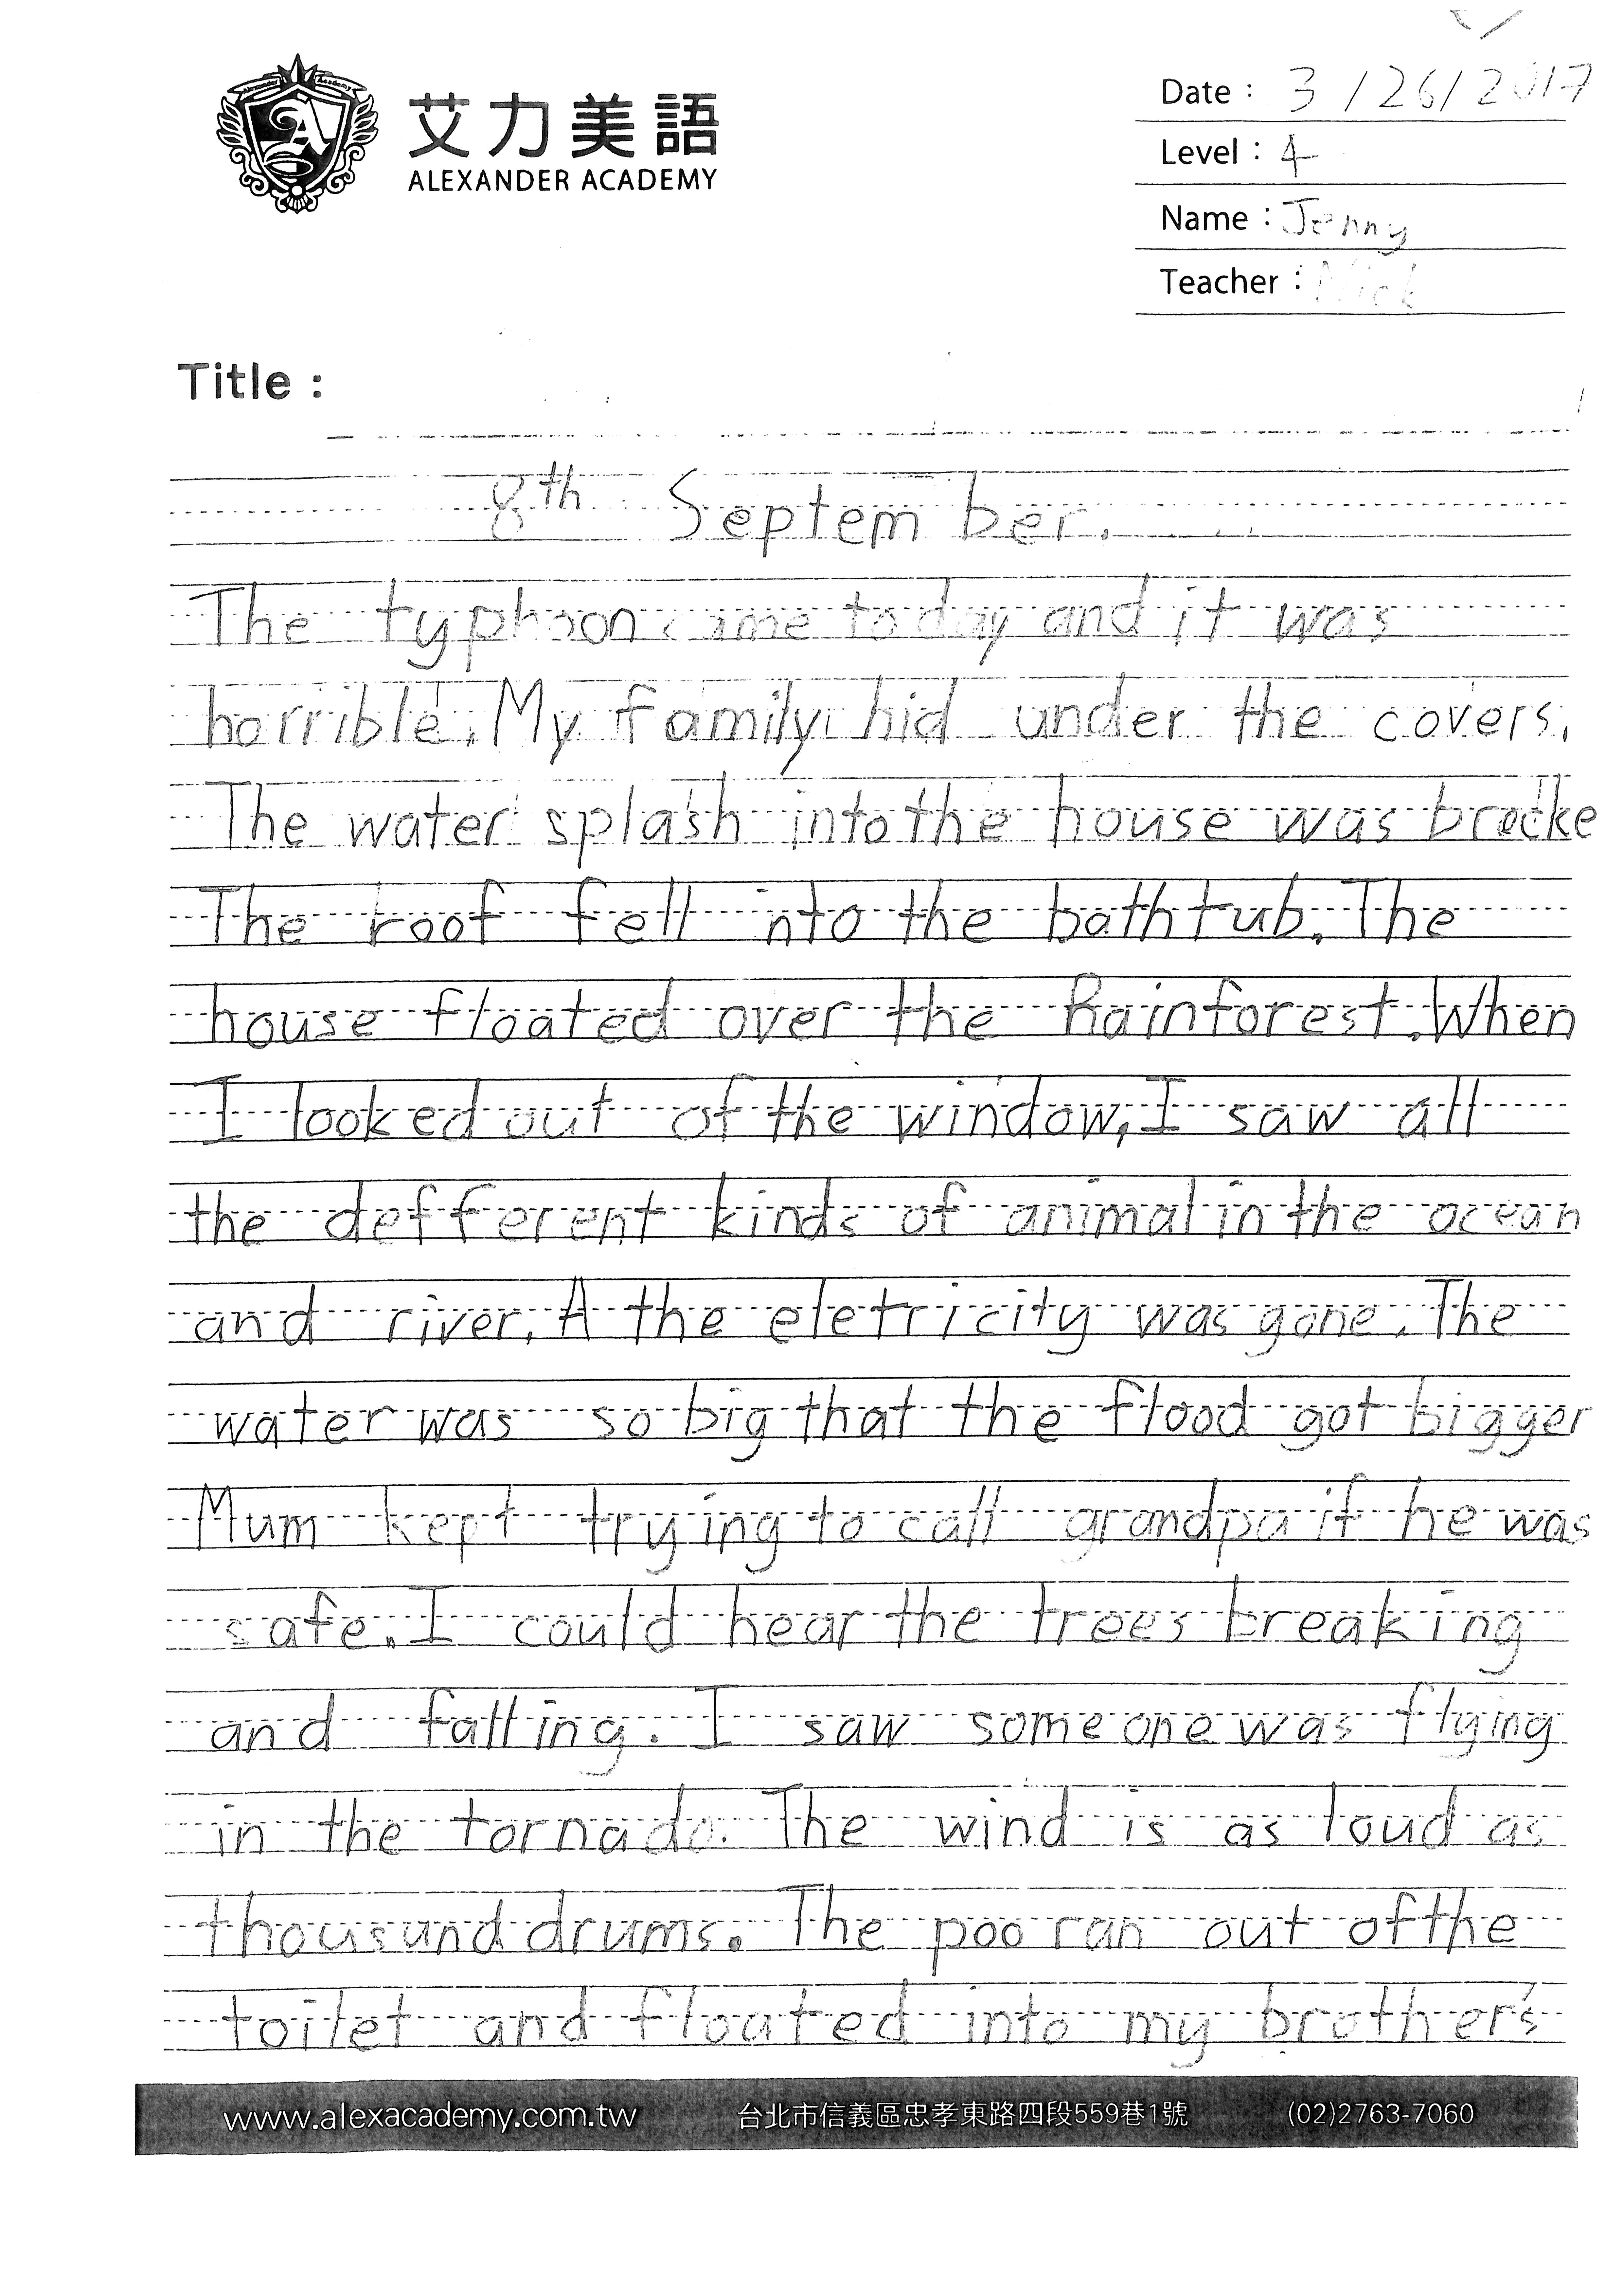 Alexander Academy
艾力美語
ALEXANDER ACADEMY
Date : 3/26/2017
Level : 4
Name : Jenny
Teacher : Nick
Title :
8th September.
The typhoon came today and it was
horrible. My family hid under the covers.
The water splash into the house was brocke
The roof fell into the bathtub. The
house floated over the Rainforest. When
I looked out of the window, I saw all
the defferent kinds of animal in the ocean
and river. A the eletricity was gone. The
water was so big that the flood got bigger
Mum kept trying to call grandpa if he was
safe. I could hear the trees breaking
and falling. I saw someone was flying
in the tornado. The wind is as loud as
thousund drums. The poo ran out of the
toilet and floated into my brother's
www.alexacademy.com.tw 台北市信義區忠孝東路四段559巷1號 (02)2763-7060